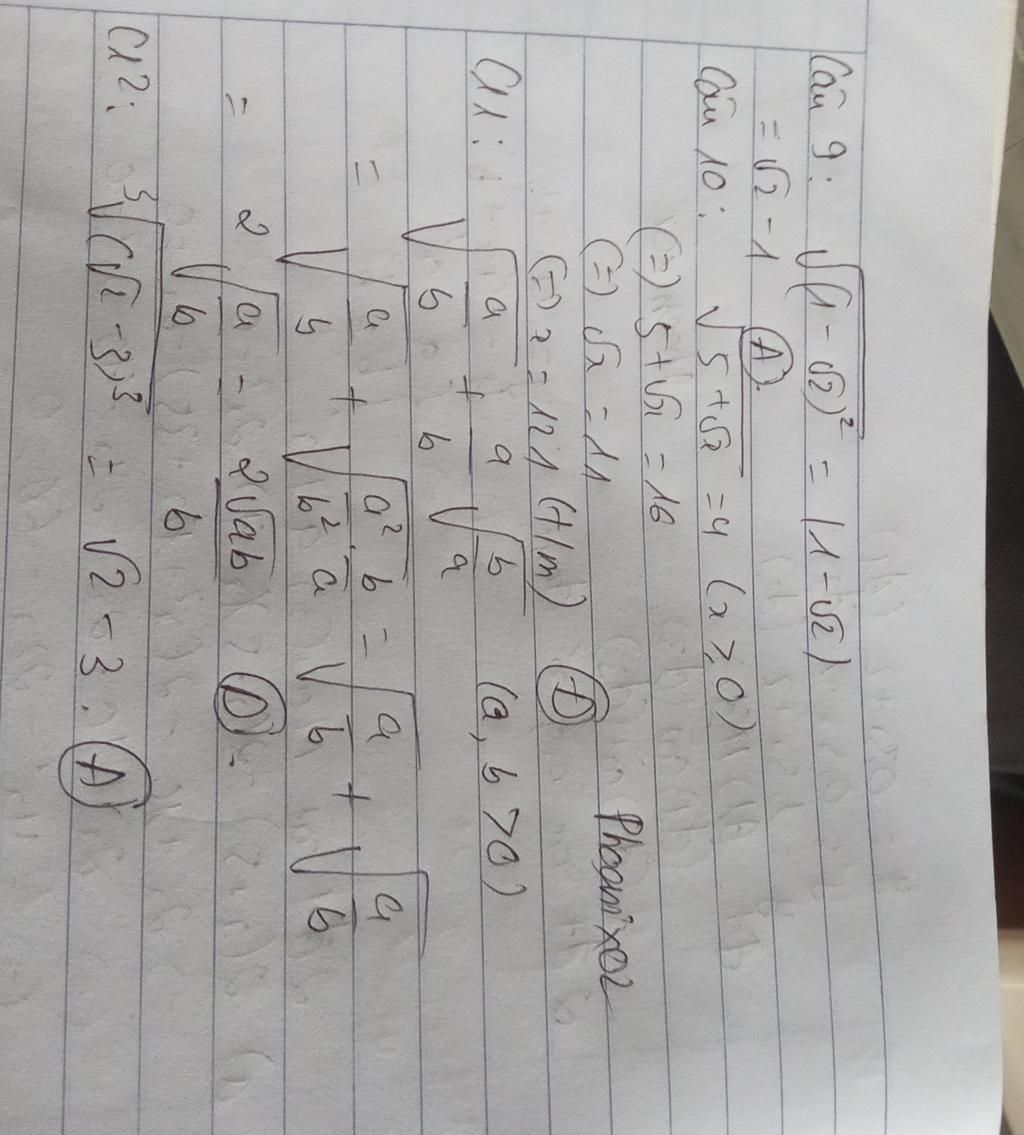 Câu 9: √(1-√2)² = |1-√2|
= √2 - 1 (A)
Câu 10: √5+√x = 4 (x ≥ 0)
(=) 5+√x = 16
(=) √x = 11
(=) x = 121 (t/m) (D)
C11: √a/b + a/b √b/a (a, b > 0)
= √a/b + √a²/b² · b/a = √a/b + √a/b
= 2√a/b = 2√ab/b (D).
C12: ³√(√2-3)³ = √2-3. (A)